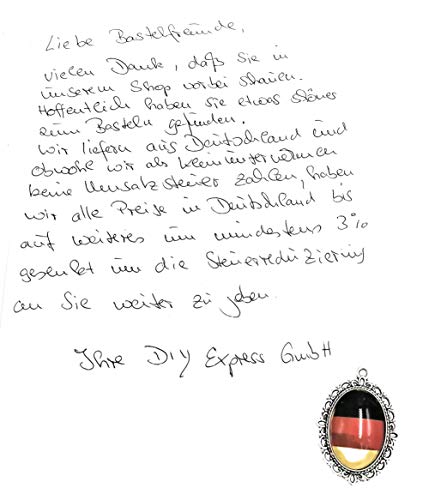 Liebe Bastelfreunde,
vielen Dank, daß Sie in
unserem Shop vorbei schauen.
Hoffentlich haben sie etwas schönes
zum Basteln gefunden.
Wir liefern aus Deutschland und
obwohl wir als Kleinunternehmen
keine Umsatzsteuer zahlen, haben
wir alle Preise in Deutschland bis
auf weiteres um mindestens 3%
gesenkt um die Steuerreduzierung
an Sie weiter zu geben.
Ihre DIY Express GmbH